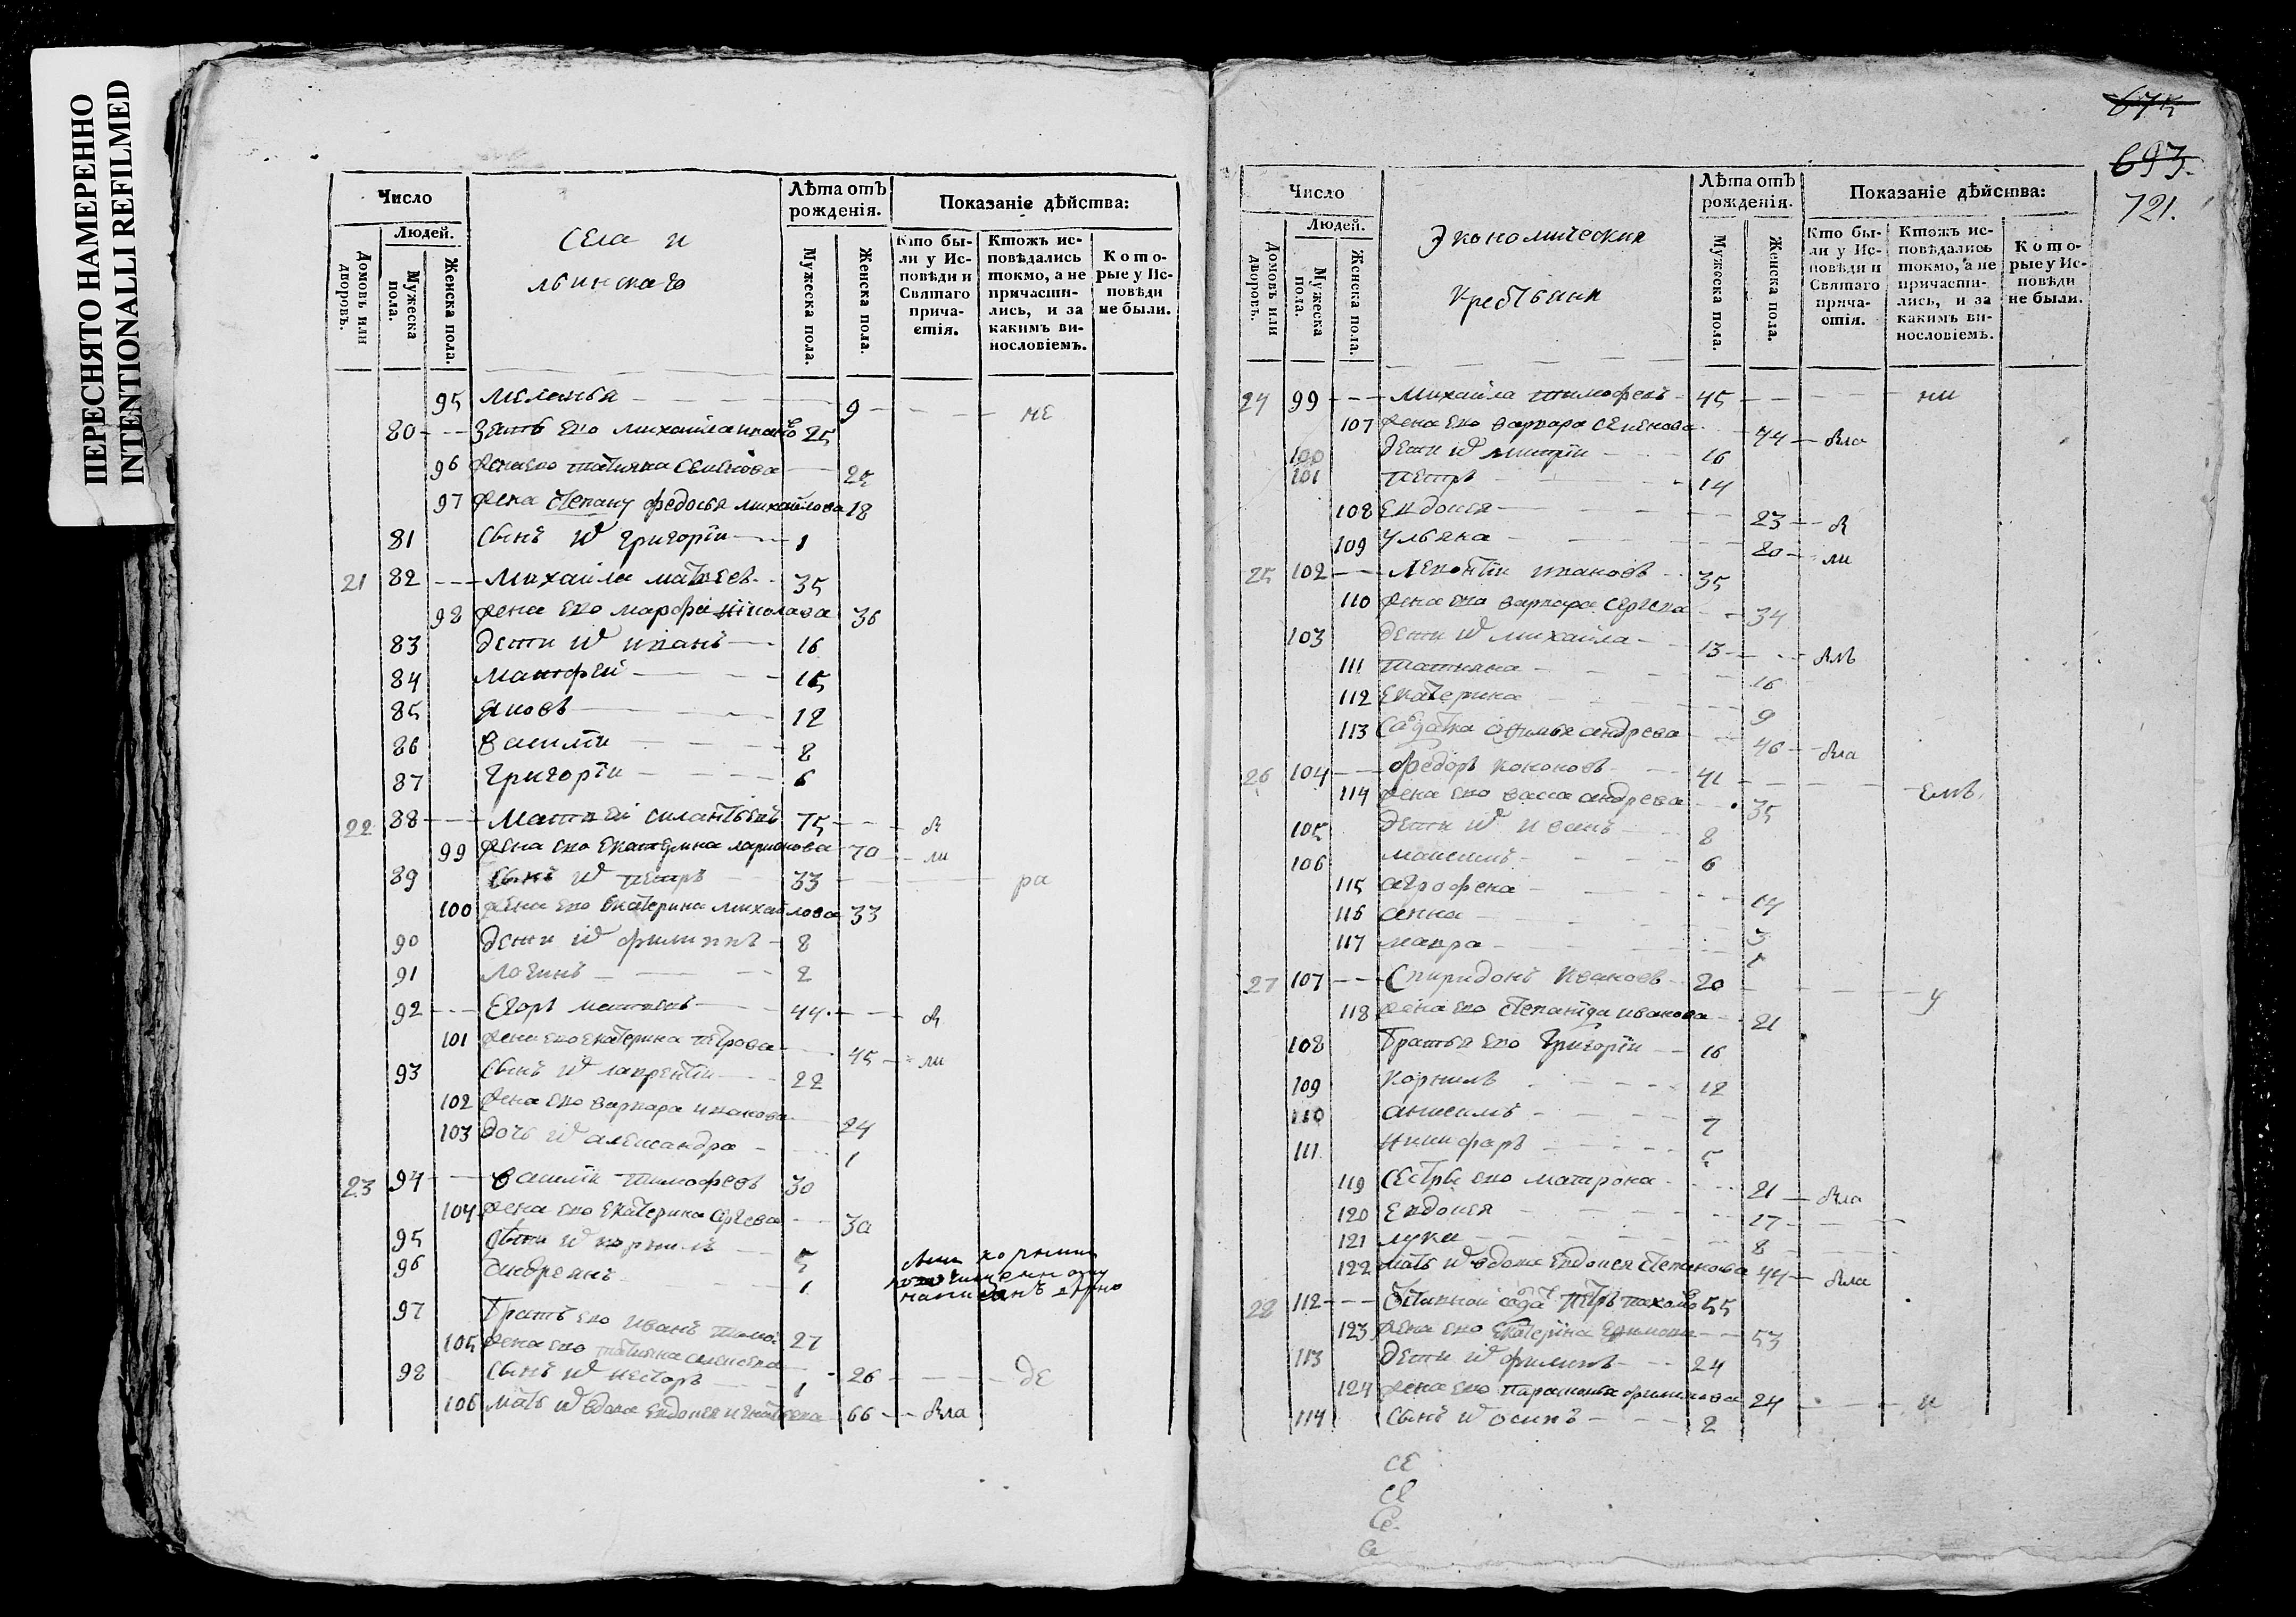 ПЕРЕСНЯТО НАМЕРЕННО
INTENTIONALLI REFILMED
Число
Людей.
Домовъ или дворовъ.
Мужеска пола.
Женска пола.
Села и
льинскаго
Лѣта отъ рожденія.
Мужеска пола.
Женска пола.
Показаніе дѣйства:
Кто были у Исповѣди и Святаго причастія.
Ктожъ исповѣдались токмо, а не причастились, и за какимъ винословіемъ.
Которые у Исповѣди не были.
95 Меланья 9 не
80 Зять ево Михаила Ивано 25
96 жена ево татьяна Семенова 25
97 жена Степану федосья михайлова 18
81 Сынъ ихъ Григорїи 1
21 82 Михаила матвеевъ 35
98 жена ево марфа николаева 36
83 дети ихъ иванъ 16
84 Матфей 15
85 яковъ 12
86 василїи 8
87 Григорїи 6
22 88 Матвей силантьевъ 75 я
99 жена ево екатерина ларионова 70 ли
89 Сынъ ихъ петръ 33 ра
100 жена ево Екатерина михайлова 33
90 дети ихъ филиппъ 8
91 логинъ 2
92 Егоръ матвевъ 44 я
101 жена ево екатерина петрова 45 ли
93 Сынъ ихъ лаврентїи 22
102 жена ево варвара иванова 24
103 дочь ихъ александра 1
23 94 василїи тимофеевъ 30
104 жена ево екатерина Сргеева 30
95 Сыни ихъ корнилъ 5
96 андреянъ 1
97 Братъ ево иванъ тимо 27
105 жена ево татьяна семенова 26 де
98 Сынъ ихъ несторъ 1
106 мать ихъ вдова евдокея игнатьева 66 яла
675
693.
721.
Число
Людей.
Домовъ или дворовъ.
Мужеска пола.
Женска пола.
Экономический
Крестьяни
Лѣта отъ рожденія.
Мужеска пола.
Женска пола.
Показаніе дѣйства:
Кто были у Исповѣди и Святаго причастія.
Ктожъ исповѣдались токмо, а не причастились, и за какимъ винословіемъ.
Которые у Исповѣди не были.
24 99 Михайла тимофевъ 45 ни
107 жена ево варвара Семенова 44 яла
100 дети ихъ митрїи 16
101 петръ 14
108 Евдокея 23 я
109 ульяна 20 ли
25 102 Леонтїи ивановъ 35
110 жена ево варвара Сергева 34
103 дети ихъ михаила 13 ялъ
111 татьяна 16
112 екатерина 9
113 Солдатка афимья андрева 46 яла
26 104 федоръ кононовъ 41 емъ.
114 жена ево васса андрева 35
105 дети ихъ иванъ 8
106 максимъ 6
115 агрофена 14
116 анна 3
117 мавра
27 107 Спиридонъ ивановъ 20 у
118 жена ево степанїда иванова 21
108 Братья ево Григорїи 16
109 корнилъ 12
110 анисимъ 7
111 никифаръ 5
119 Сестры ево матрона 21 яла
120 Евдокея 17
121 луки 8
122 мать ихъ вдова Евдокея Степанова 44 яла
28 112 Отставной солдатъ Петръ пахомо 55
123 жена ево Екатерїна Ермола 53
113 Дети ихъ филипъ 24
124 жена ево парасковья филипова 24 и
114 Сынъ ихъ осипъ 2
се
се
Се
Се